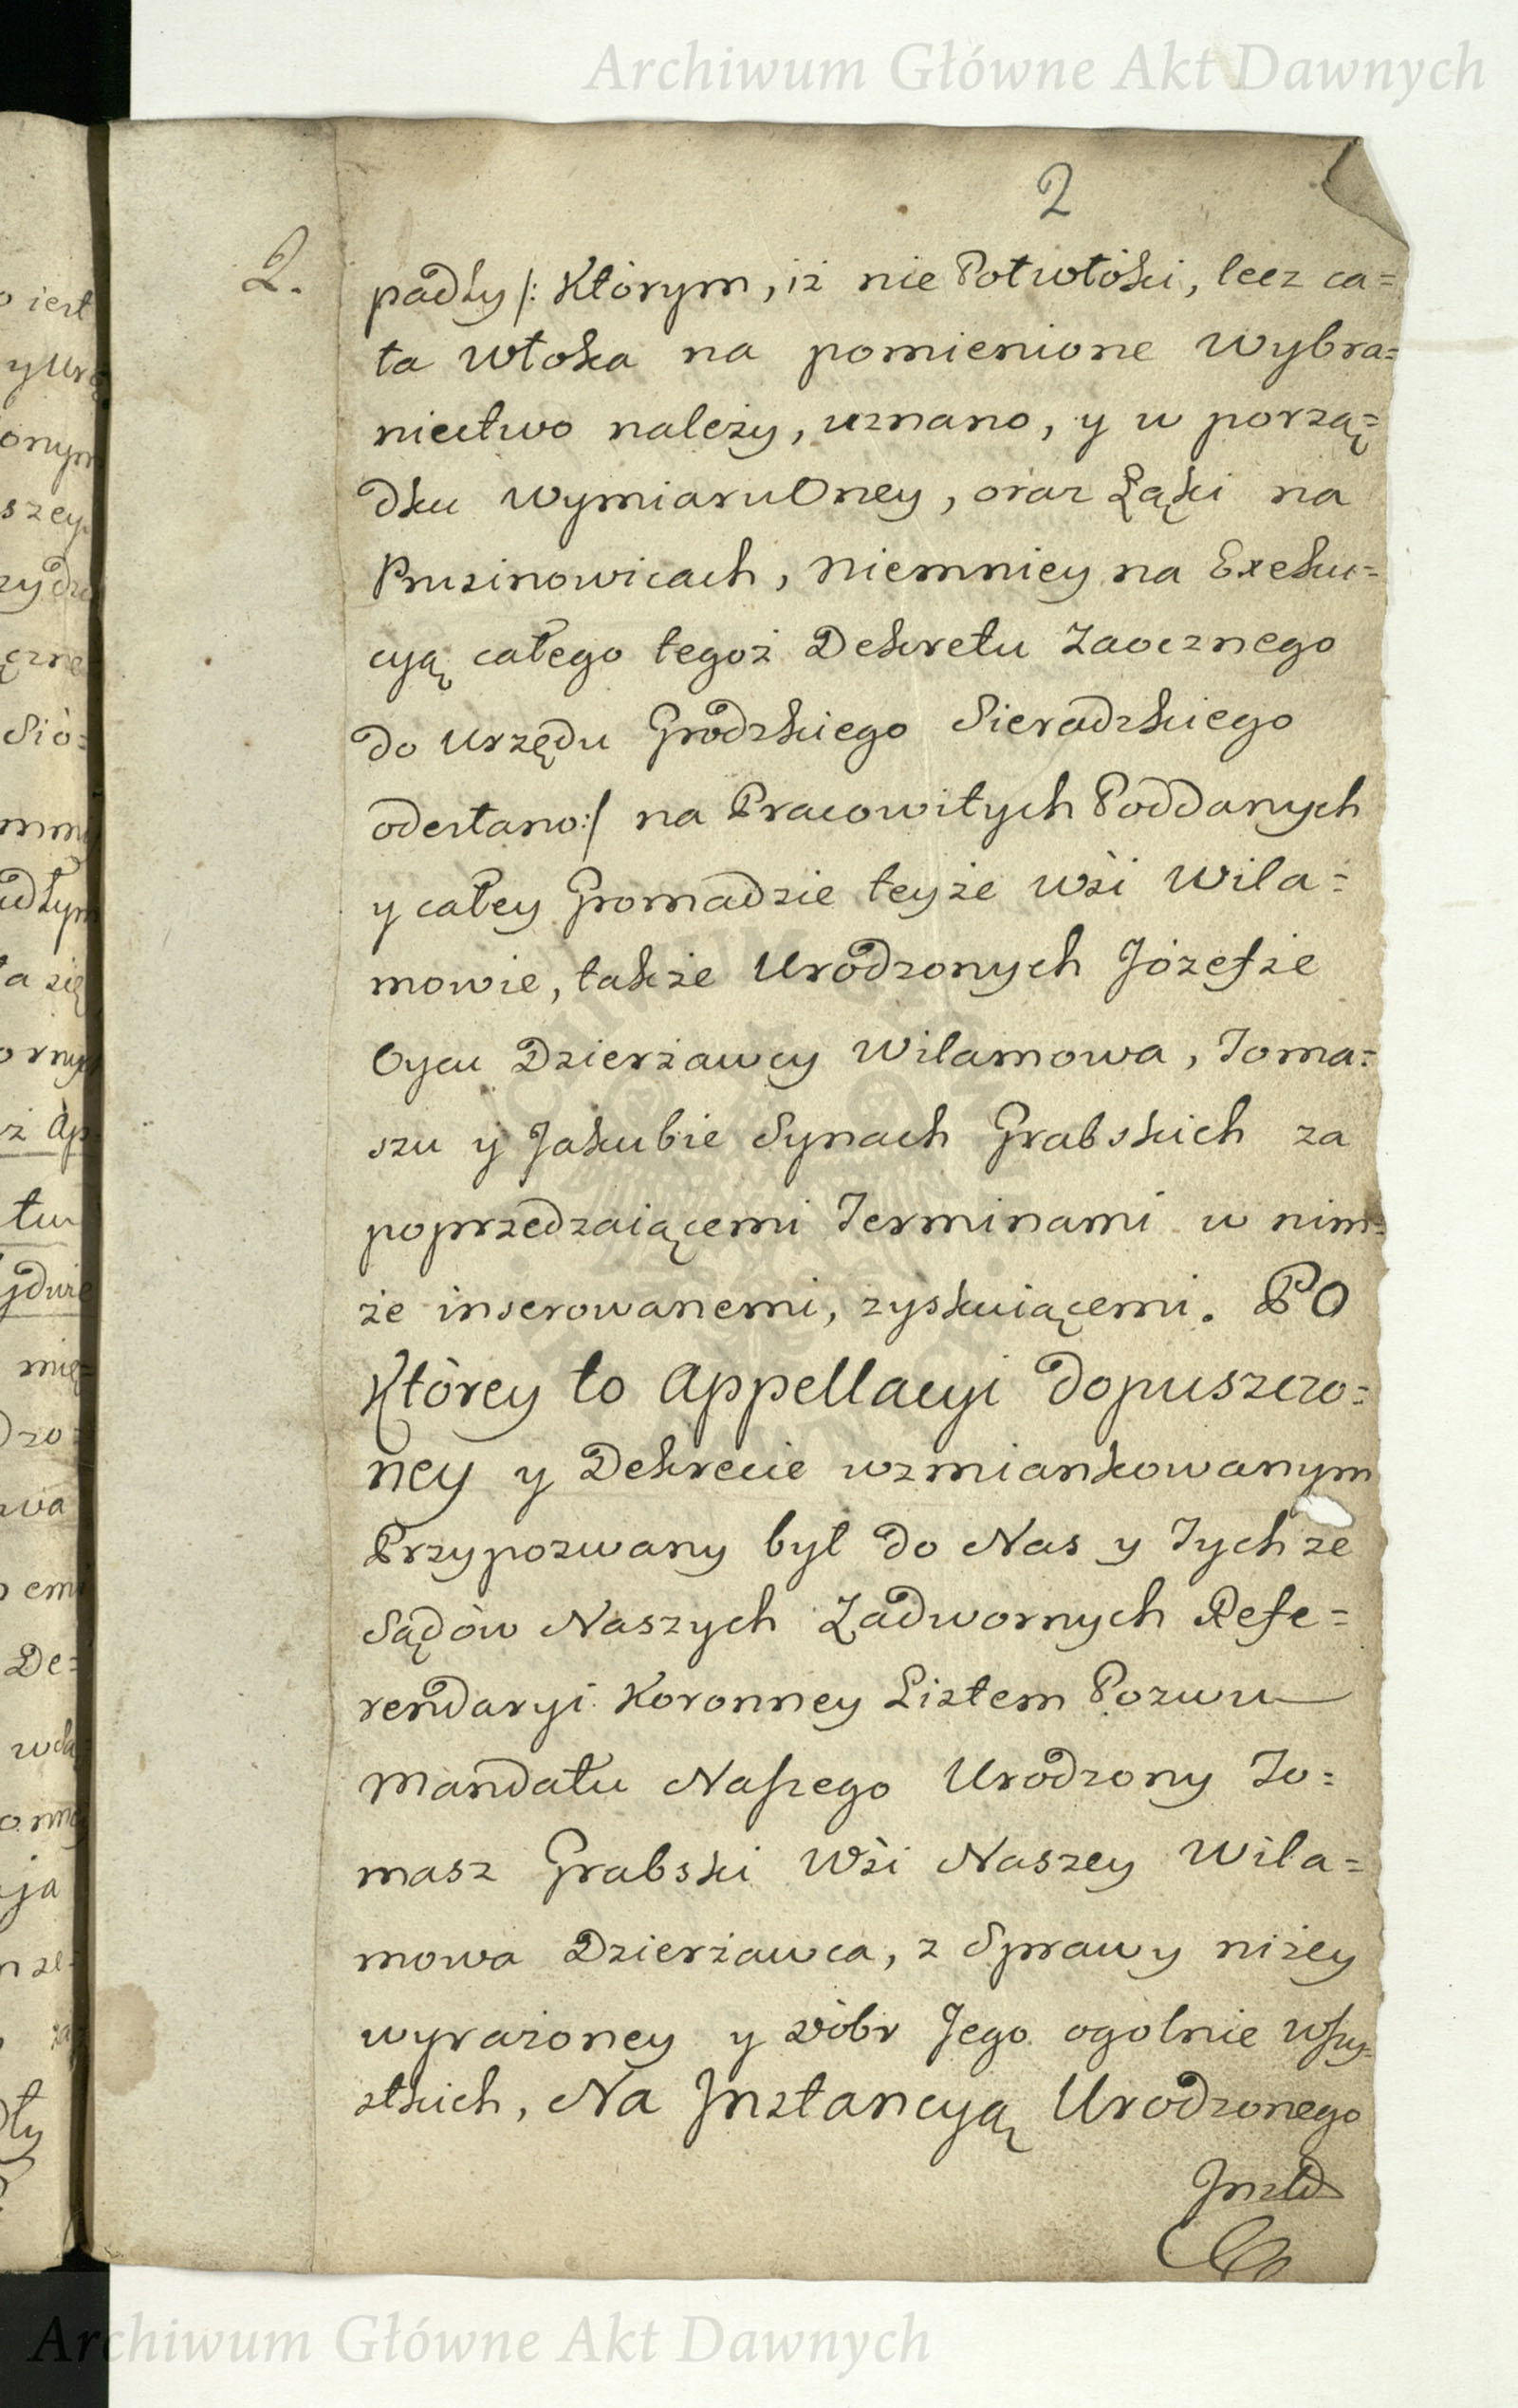 Archiwum Główne Akt Dawnych
2
2.
padły /: Którym, iż nie Połwłóki, lecz ca=
ła Włoka na pomienione Wybra=
niectwo należy, uznano, y w porzą=
dku WymiaruOney, oraz Łąki na
Pruzinowicach, niemniey na Exeku=
cyą całego tegoż Dekretu Zaocznego
do Urzędu Grodzkiego Sieradzkiego
odesłano:/ na Pracowitych Poddanych
y całey Gromadzie teyże Wsi Wila=
mowie, także Urodzonych Józefie
Oycu Dzierżawcy Wilamowa, Toma=
szu y Jakubie Synach Grabskich za
poprzedzaiącemi Terminami w nim=
że inserowanemi, zyskuiącemi. PO
Którey to Appellacyi dopuszczo=
ney y Dekrecie wzmiankowanym
Przypozwany był do Nas y Tychże
Sądów Naszych Zadwornych Refe=
rendaryi Koronney Listem Pozwu
Mandatu Naszego Urodzony To=
masz Grabski Wsi Naszey Wila=
mowa Dzierżawca, z Sprawy niżey
wyrażoney y Dóbr Jego ogolnie Wszy=
stkich, Na Jnstancyą Urodzonego
Archiwum Główne Akt Dawnych